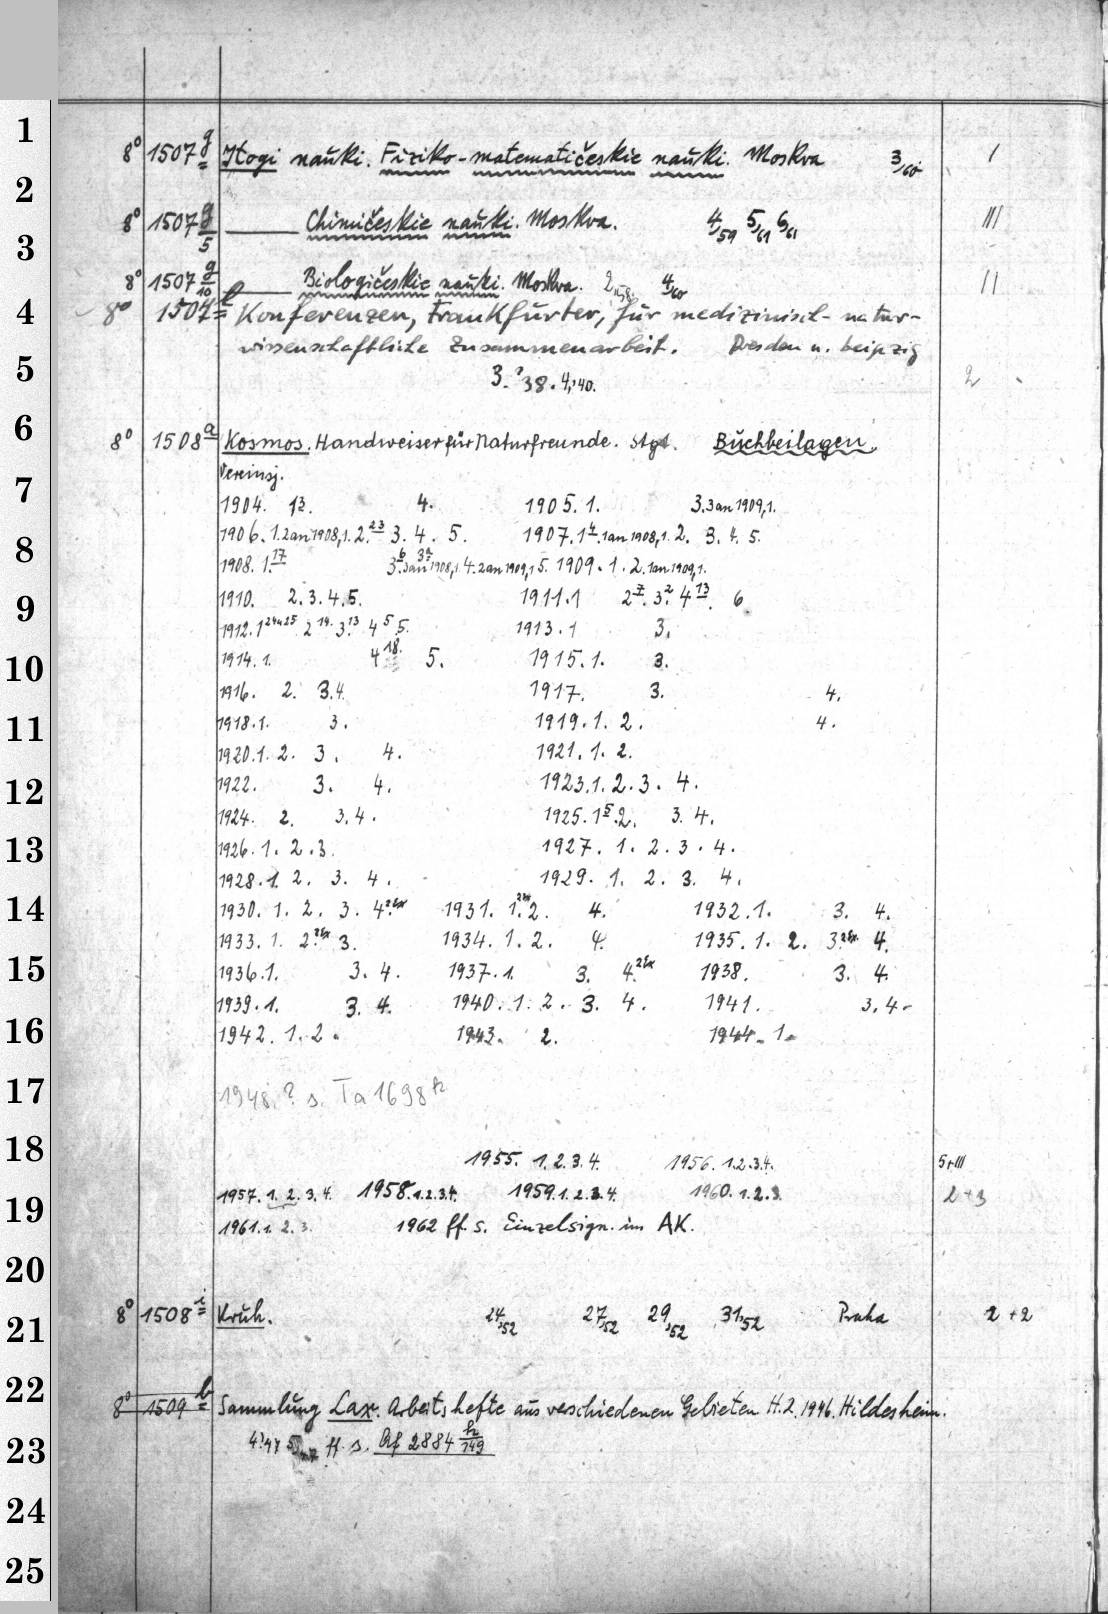 1
8° 1507 g Itogi nauki. Fiziko-matematičeskie nauki. Moskva 3,60 I
2
8° 1507 g/5 ——— Chimičeskie nauki. Moskva. 4,59 5,61 6,61 III
3
8° 1507 g/10 ——— Biologičeskie nauki. Moskva. 4,60 II
4
8° 1507 Konferenzen, Frankfurter, für medizinisch-natur-
wissenschaftliche Zusammenarbeit. Dresden u. Leipzig
5
3.,38. 4,40. 2
6
8° 1508 a Kosmos. Handweiser für Naturfreunde. Stgt. Buchbeilagen.
Vereinsj.
7
1904. 4. 1905. 1. 3. 3an 1909,1.
1906. 1. 2an 1908,1. 2. 23 3. 4. 5. 1907. 1. 4 1an 1908,1. 2. 3. 4. 5.
8
1908. 1. 17 3. 6 3an 1908,1. 4. 2an 1909,1 5. 1909. 1. 2. 1an 1909,1.
1910. 2. 3. 4. 5. 1911. 1 2 7. 3. 2 4 13. 6
9
1912. 1 24u25 2 14. 3. 13 4 5 5. 1913. 1 3.
10
1914. 1. 4 18. 5. 1915. 1. 3.
1916. 2. 3. 4. 1917. 3. 4.
11
1918. 1. 3. 1919. 1. 2. 4.
1920. 1. 2. 3. 4. 1921. 1. 2.
12
1922. 3. 4. 1923. 1. 2. 3. 4.
1924. 2. 3. 4. 1925. 1 5. 2. 3. 4.
13
1926. 1. 2. 3. 1927. 1. 2. 3. 4.
1928. 1. 2. 3. 4. 1929. 1. 2. 3. 4.
14
1930. 1. 2. 3. 4. 2Ex 1931. 1. 2Ex 2. 4. 1932. 1. 3. 4.
1933. 1. 2. 2Ex 3. 1934. 1. 2. 4. 1935. 1. 2. 3. 2Ex 4.
15
1936. 1. 3. 4. 1937. 1. 3. 4. 2Ex 1938. 3. 4.
1939. 1. 3. 4. 1940. 1. 2. 3. 4. 1941. 3. 4.
16
1942. 1. 2. 1943. 2. 1944. 1.
17
1948. ? s. Ta 1698 k
18
1955. 1. 2. 3. 4. 1956. 1. 2. 3. 4. 5+III
1957. 1. 2. 3. 4. 1958. 1. 2. 3. 4. 1959. 1. 2. 3. 4. 1960. 1. 2. 3. 2+3
19
1961. 1. 2. 3. 1962 ff. s. Einzelsign. im AK.
20
21
8° 1508 i Kruh. 24,52 27,52 29,52 31,52 Praha 2+2
22
8° 1509 b Sammlung Lax. Arbeitshefte aus verschiedenen Gebieten H. 2. 1946. Hildesheim.
23
4,47 ff. s. Af 2884 h/149
24
25